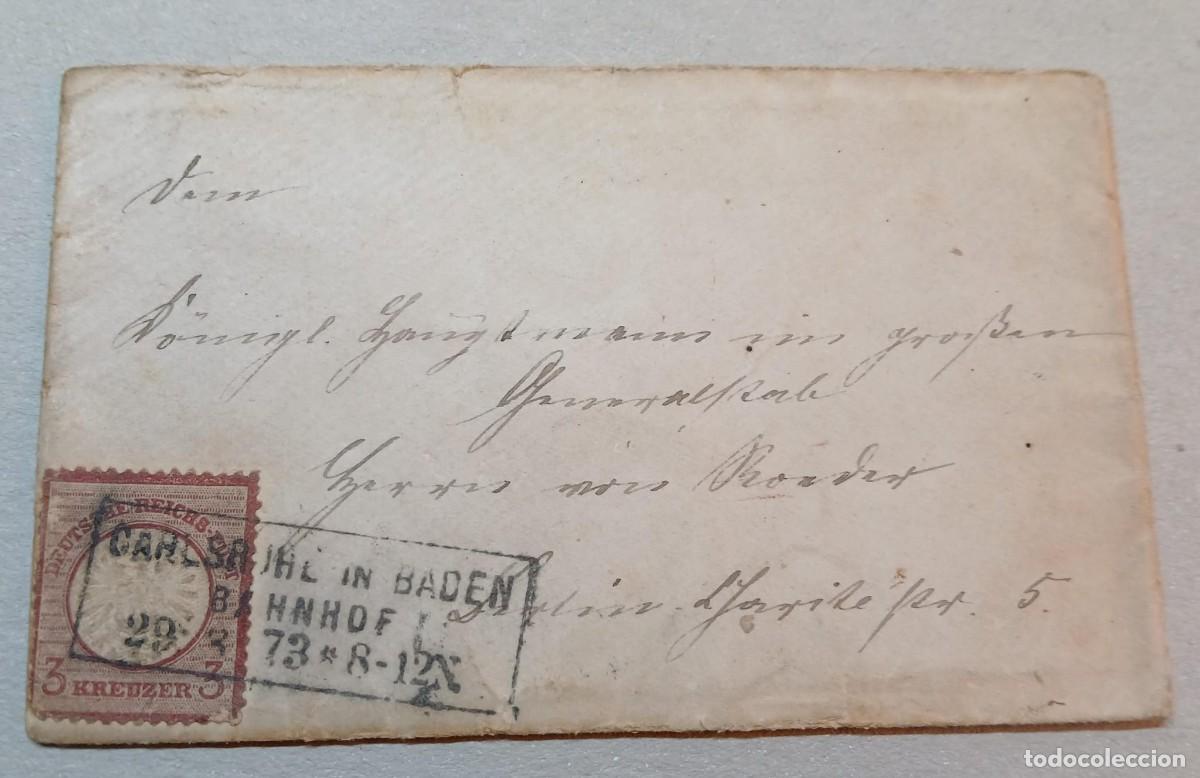 Dem
Königl. Hauptmann im großen
Generalstab
Herrn von Roeder
Berlin Charité str. 5.
DEUTSCHE REICHS-POST
3 KREUZER 3
CARLSRUHE IN BADEN
BAHNHOF
29 3 73 * 8-12N
todocoleccion